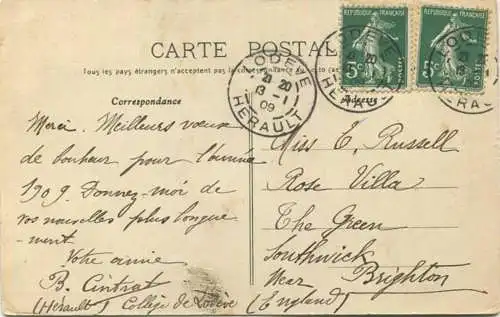 CARTE POSTALE
Tous les pays étrangers n'acceptent pas la correspondance au recto
Correspondance
Adresse
RÉPUBLIQUE FRANÇAISE
5c
RÉPUBLIQUE FRANÇAISE
5c
LODEVE
21 20
13 -1
09
HERAULT
LODEVE
HERAULT
LODEVE
HERAULT
Merci. Meilleurs vœux
de bonheur pour l'année
1909. Donnez-moi de
vos nouvelles plus longue-
ment.
Votre amie
B. Cintrat
(Hérault) Collège de Lodève
Miss E. Russell
Rose Villa
The Green
Southwick
Near Brighton
(England)